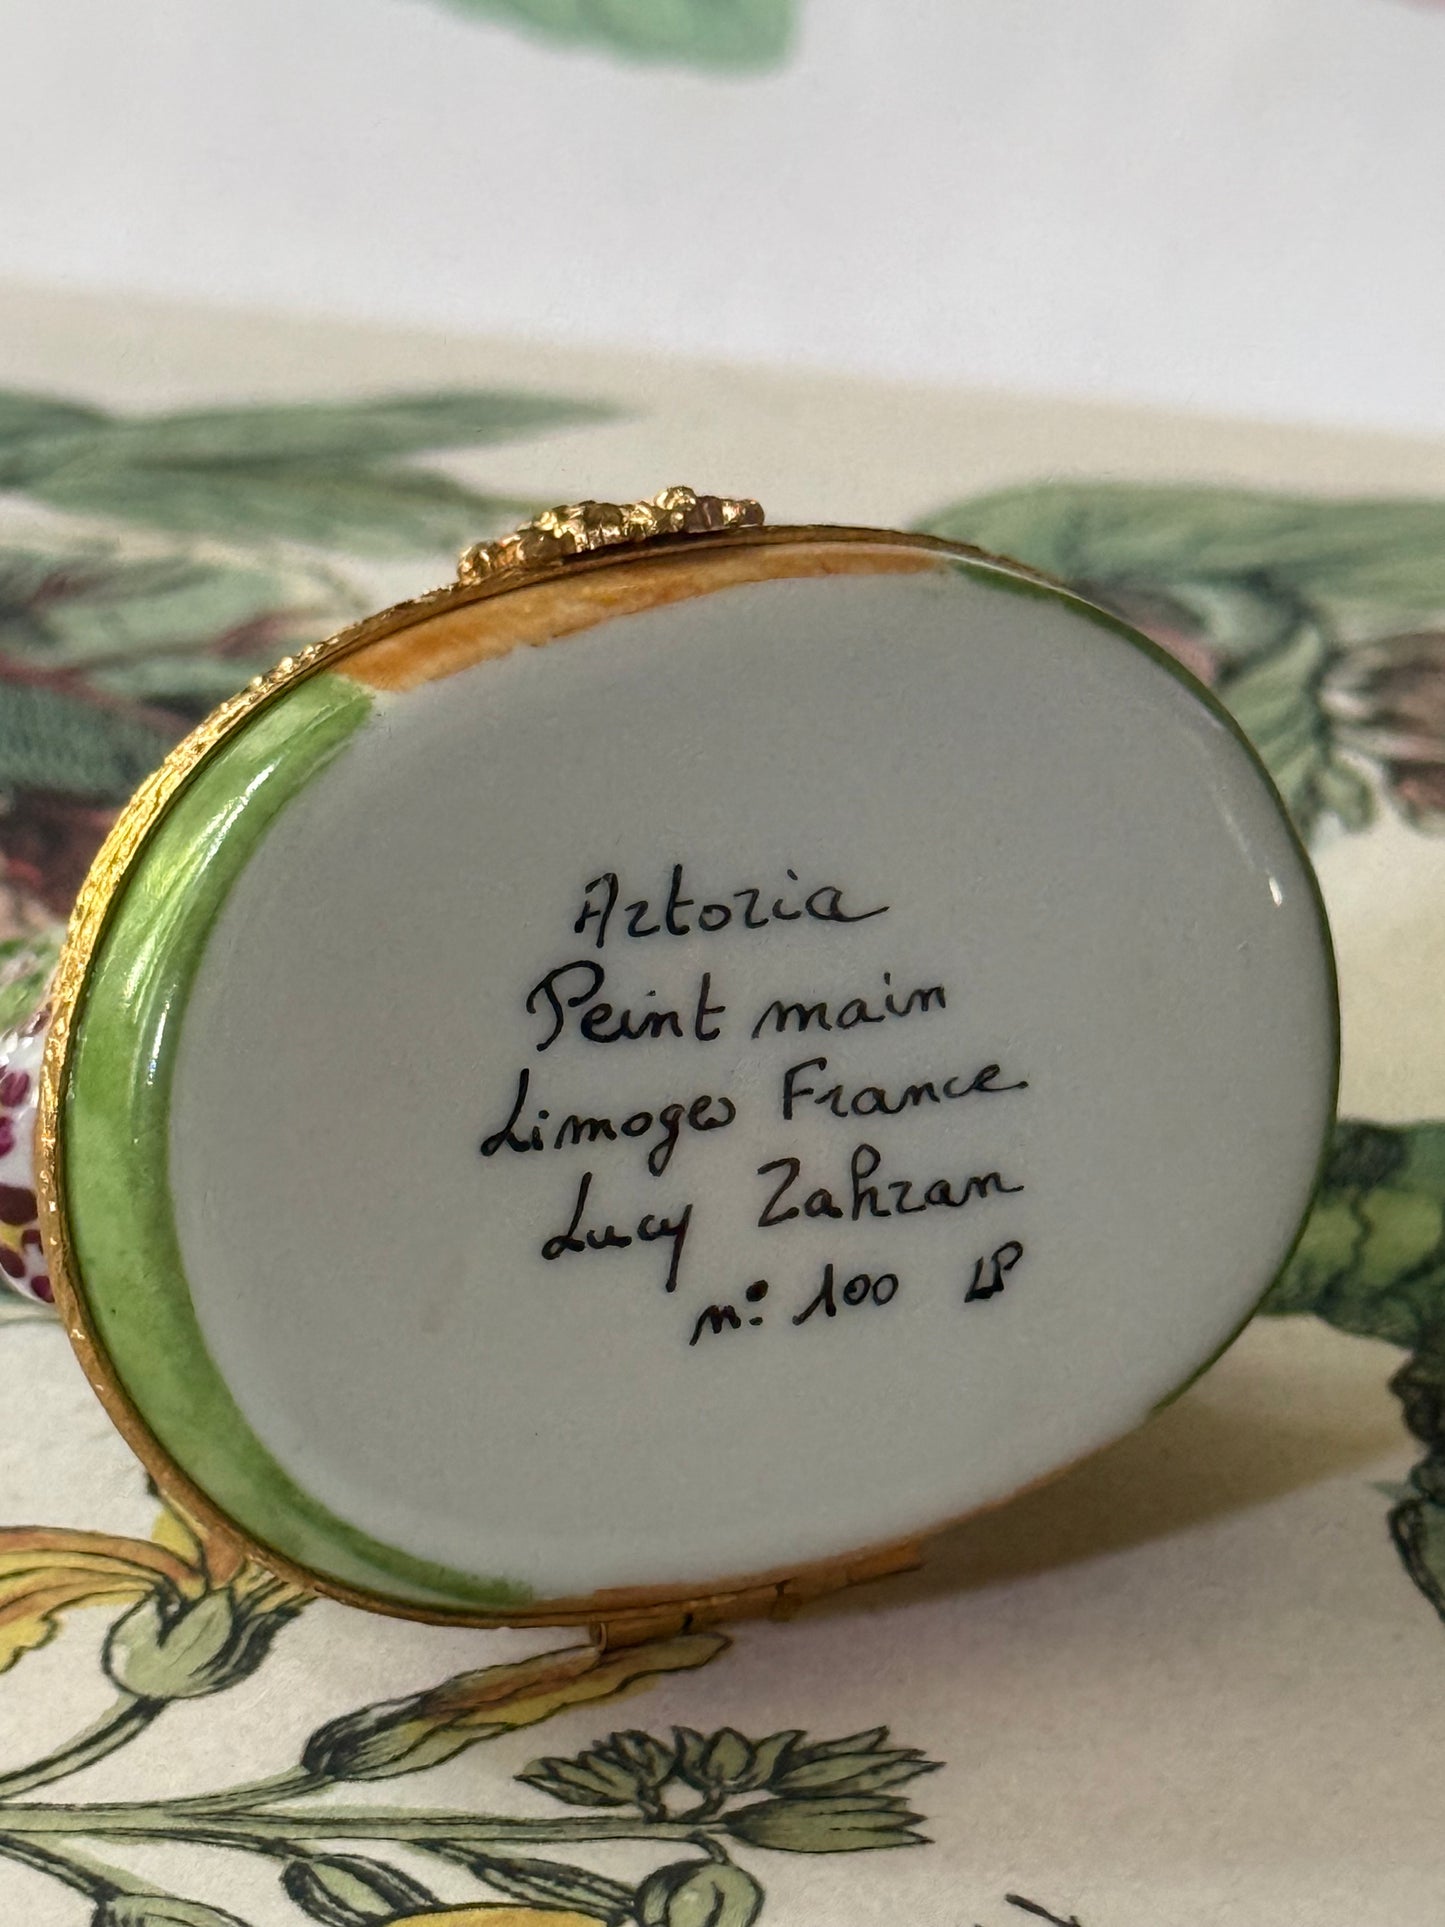 Artoria
Peint main
Limoges France
Lucy Zahran
n° 100 LP